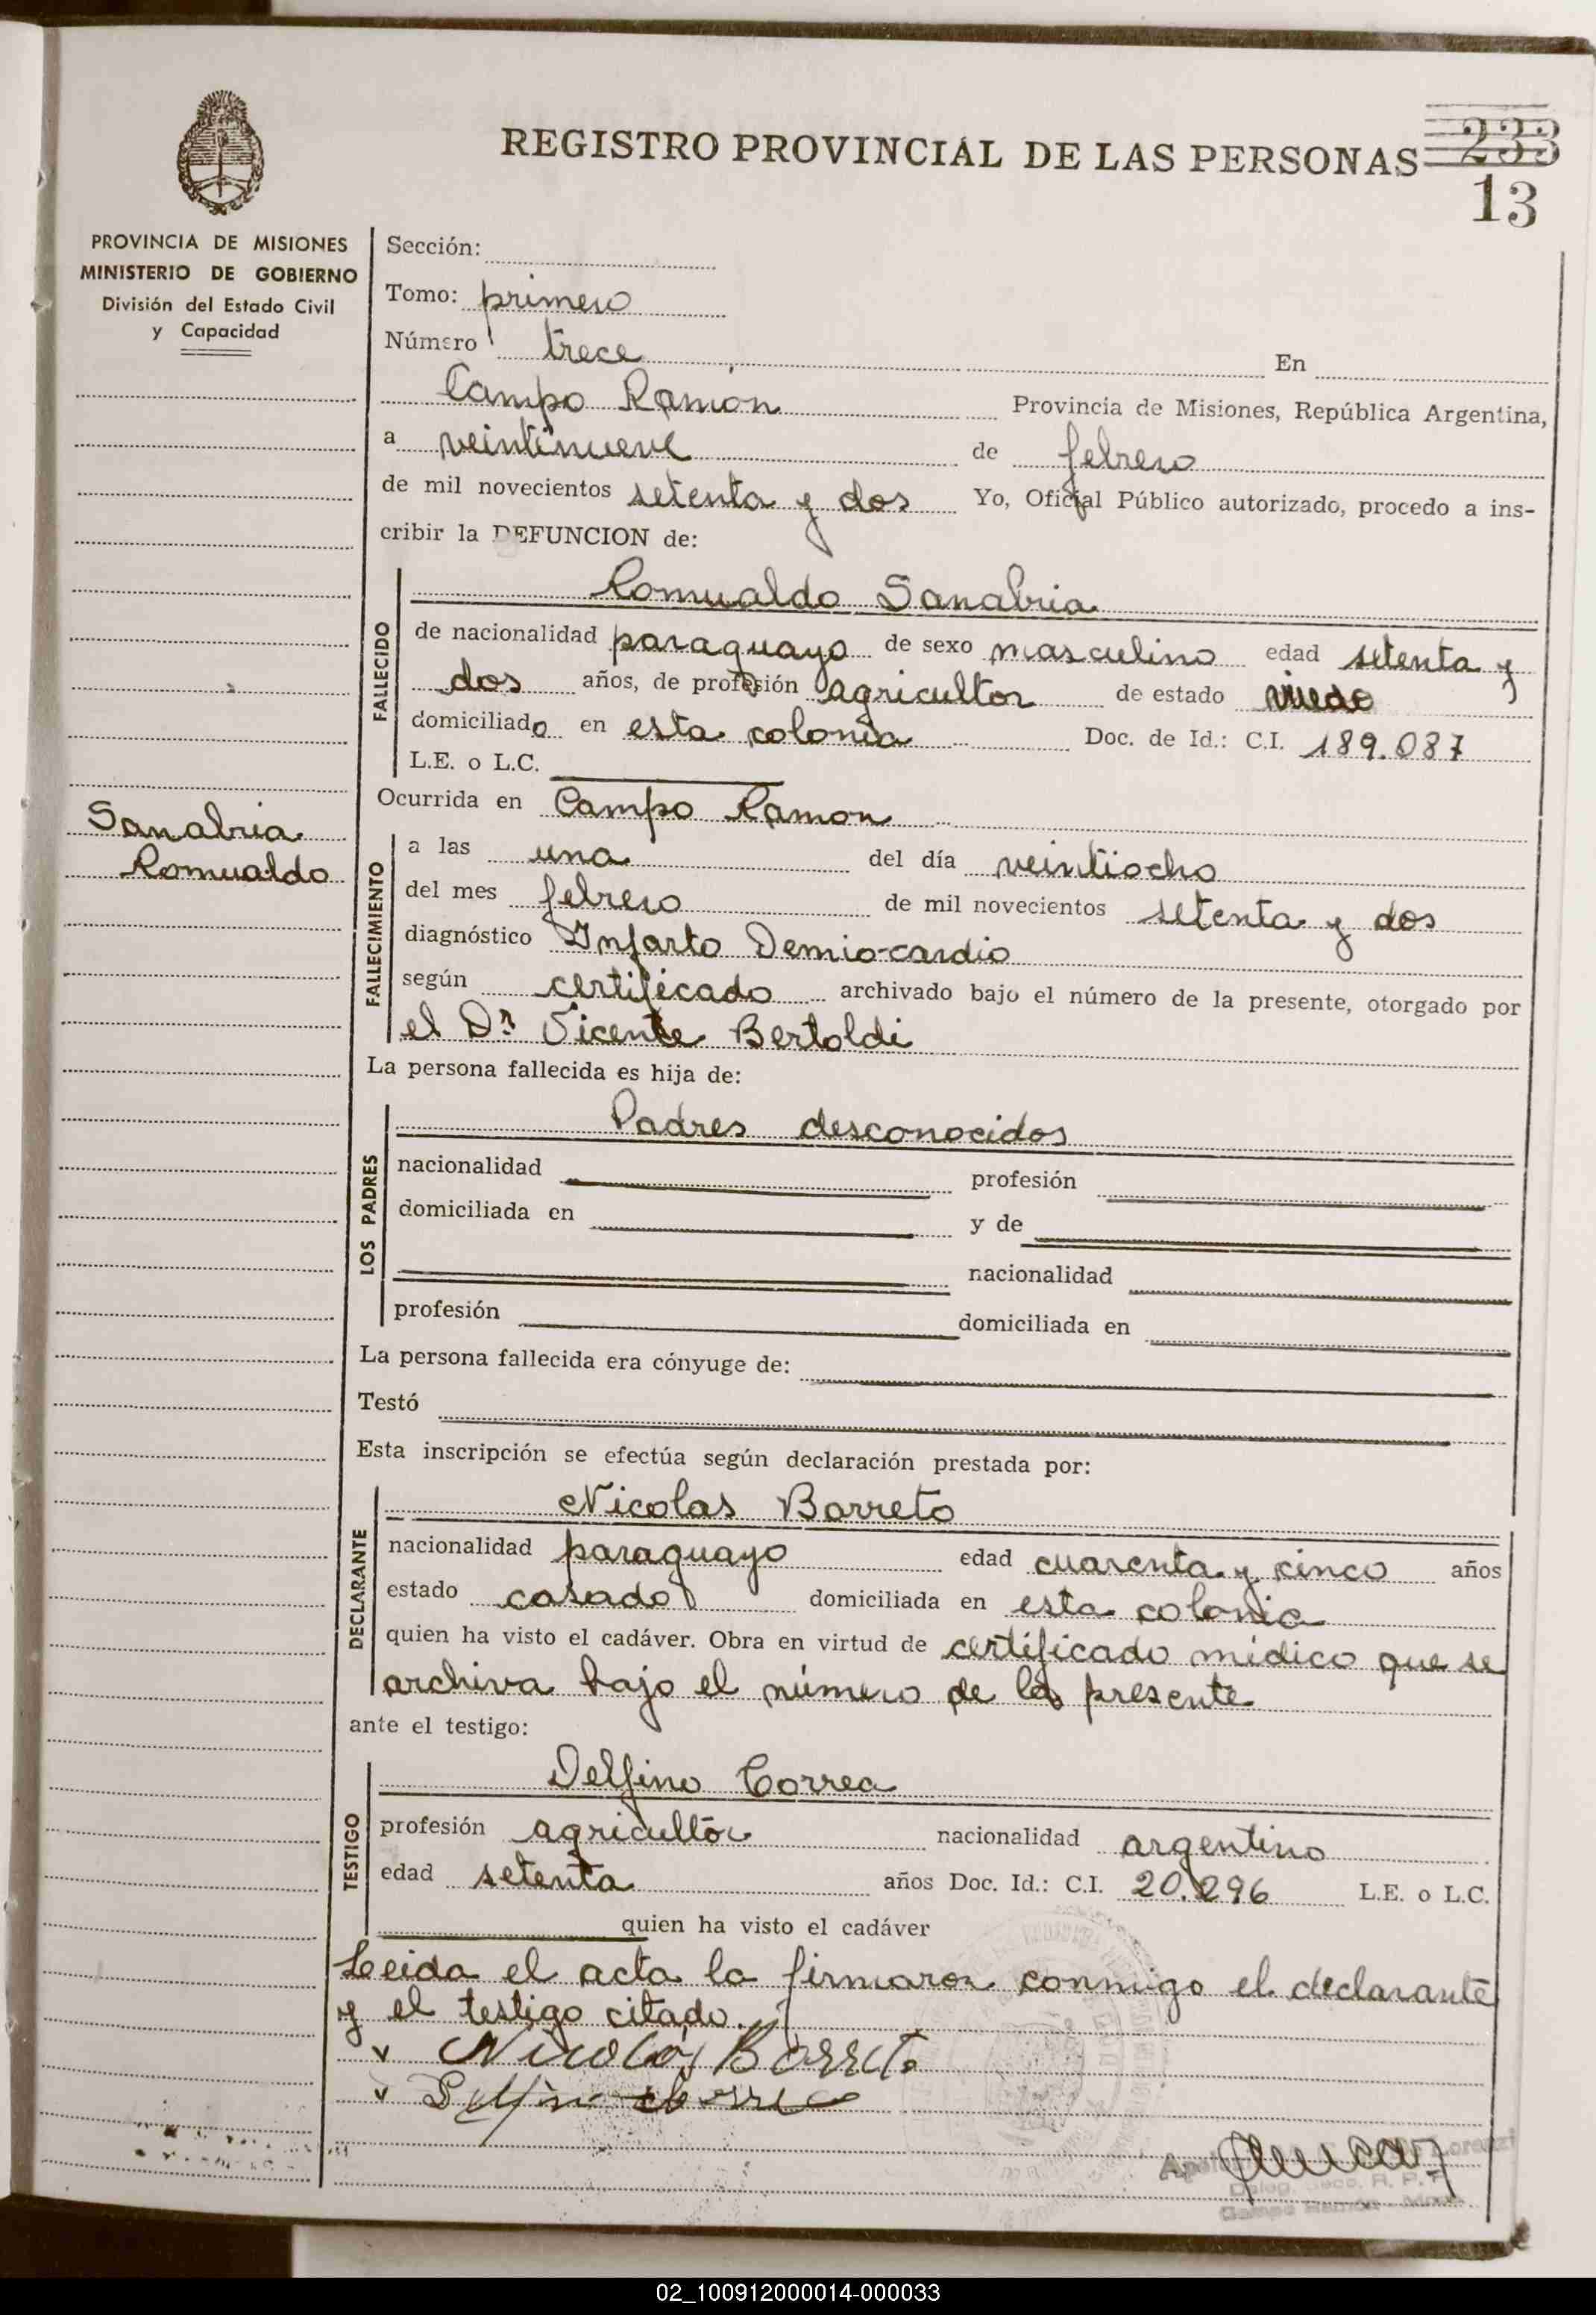 REGISTRO PROVINCIAL DE LAS PERSONAS
233
13
PROVINCIA DE MISIONES
MINISTERIO DE GOBIERNO
División del Estado Civil
y Capacidad
Sección:
Tomo: primero
Número trece En
Campo Ramón Provincia de Misiones, República Argentina,
a veintinueve de febrero
de mil novecientos setenta y dos Yo, Oficial Público autorizado, procedo a ins-
cribir la DEFUNCION de:
FALLECIDO
Romualdo Sanabria
de nacionalidad paraguayo de sexo masculino edad setenta y
dos años, de profesión agricultor de estado viudo
domiciliado en esta colonia Doc. de Id.: C.I. 189.087
L.E. o L.C.
Sanabria
Romualdo
Ocurrida en Campo Ramon
FALLECIMIENTO
a las una del día veintiocho
del mes febrero de mil novecientos setenta y dos
diagnóstico Infarto Demio-cardio
según certificado archivado bajo el número de la presente, otorgado por
el Dr Vicente Bertoldi
La persona fallecida es hija de:
LOS PADRES
Padres desconocidos
nacionalidad profesión
domiciliada en y de
nacionalidad
profesión domiciliada en
La persona fallecida era cónyuge de:
Testó
Esta inscripción se efectúa según declaración prestada por:
DECLARANTE
Nicolas Barreto
nacionalidad paraguayo edad cuarenta y cinco años
estado casado domiciliada en esta colonia
quien ha visto el cadáver. Obra en virtud de certificado médico que se
archiva bajo el número de la presente
ante el testigo:
TESTIGO
Delfino Correa
profesión agricultor nacionalidad argentino
edad setenta años Doc. Id.: C.I. 20.296 L.E. o L.C.
quien ha visto el cadáver
Leida el acta la firmaron conmigo el declarante
y el testigo citado.
v Nicolás Barreto
v Delfino Correa
Lorenzi
Campo Ramón
02_100912000014-000033